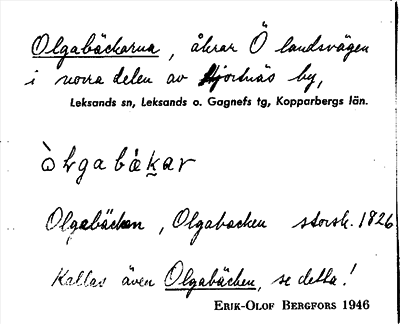 Olgabäckarna, åkrar Ö landsvägen
i norra delen av Hjortnäs by,
Leksands sn, Leksands o. Gagnefs tg, Kopparbergs län.
Olgabäcken, Olgabacken storsk. 1826
Kallas även Olgabäcken, se detta!
ERIK-OLOF BERGFORS 1946